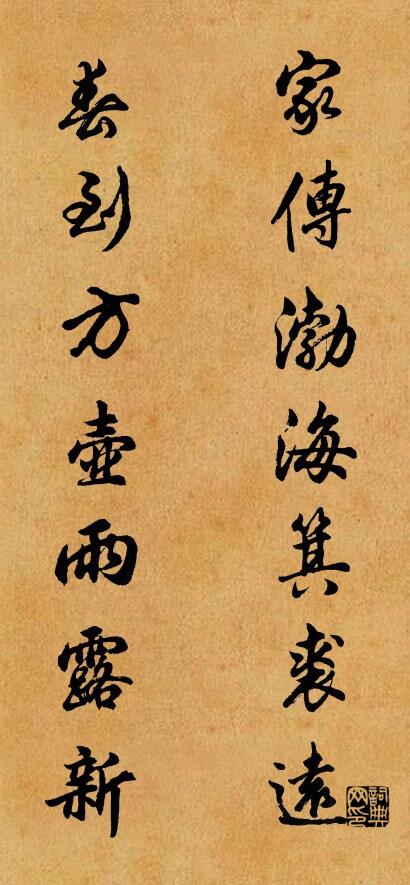 家傳渤海箕裘遠
春到方壺雨露新
詞典網印